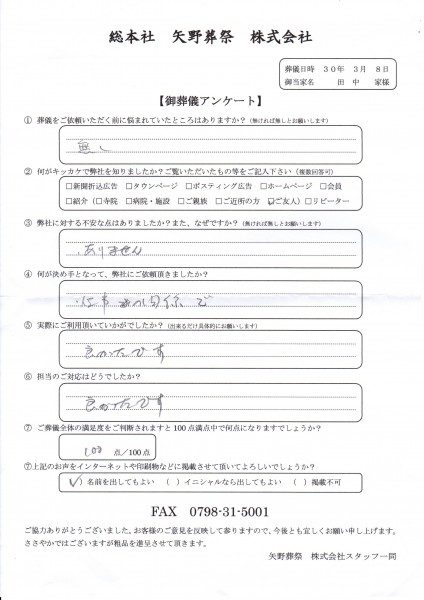 総本社 矢野葬祭 株式会社
葬儀日時 30年 3月 8日
御当家名 田中 家様
【御葬儀アンケート】
① 葬儀をご依頼いただく前に悩まれていたところはありますか？(無ければ無しとお願いします)
無し
② 何がキッカケで弊社を知りましたか？ご覧いただいたもの等をご記入下さい（複数回答可）
□新聞折込広告 □タウンページ □ポスティング広告 □ホームページ □会員
□紹介（□寺院 □病院・施設 □ご親族 □ご近所の方 ☑ご友人）□リピーター
③ 弊社に対する不安な点はありましたか？また、なぜですか？(無ければ無しとお願いします)
・ありません
④ 何が決め手となって、弊社にご依頼頂きましたか？
・仕事の関係で
⑤ 実際にご利用頂いていかがでしたか？(出来るだけ具体的にお願いします)
良かったです
⑥ 担当のご対応はどうでしたか？
良かったです
⑦ ご葬儀全体の満足度をご判断されますと100点満点中で何点になりますでしょうか？
100 点/100点
⑦上記のお声をインターネットや印刷物などに掲載させて頂いてよろしいでしょうか？
(✓) 名前を出してもよい ( ) イニシャルなら出してもよい ( ) 掲載不可
FAX 0798-31-5001
ご協力ありがとうございました、お客様のご意見を反映して参りますので、今後とも宜しくお願い申し上げます。
ささやかではございますが粗品を進呈させて頂きます。
矢野葬祭 株式会社スタッフ一同